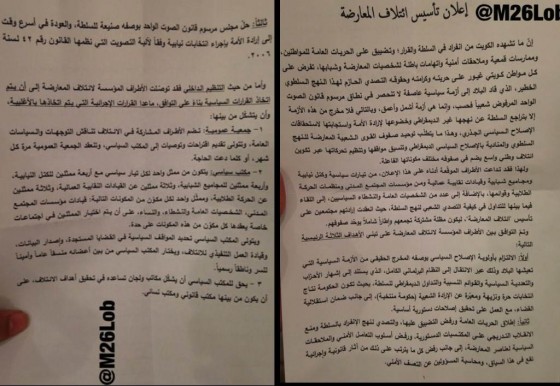 إعلان تأسيس ائتلاف المعارضة
@M26Lob
إن ما تشهده الكويت من انفراد في السلطة والقرار، وتضييق على الحريات العامة للمواطنين،
وممارسات قمعية وملاحقات أمنية واتهامات باطلة للشخصيات المعارضة وشبابها، تفرض على
كل مواطن كويتي غيور على حريته وكرامته وحقوقه التصدي الحازم لهذا النهج السلطوي
الخطير، الذي قاد البلاد إلى أزمة سياسية عاصفة لا تنحصر في نطاق مرسوم قانون الصوت
الواحد المرفوض شعبياً فحسب، وإنما هي أزمة أشمل وأعمق، وبالتالي فلا مخرج من هذه الأزمة
إلا بتراجع السلطة عن نهجها غير الديمقراطي وخضوعها لإرادة الأمة واستجابتها لاستحقاقات
الإصلاح السياسي الجذري، وهذا ما يتطلب توحيد صفوف القوى الشعبية المعارضة للنهج
السلطوي والمنادية بالإصلاح السياسي الديمقراطي وتنسيق مواقفها وتنظيم تحركاتها عبر تكوين
ائتلاف وطني واسع يضم في صفوفه مختلف مكوناتها الفاعلة.
ولهذا فقد تداعت الأطراف الموقعة أدناه على هذا الإعلان، من تيارات سياسية وكتل نيابية
ومجاميع شبابية وقيادات نقابية عمالية ومن مؤسسات المجتمع المدني ومنظمات الحركة
الطلابية وقياداتها، بالإضافة إلى عدد من الشخصيات العامة والنشطاء السياسيين، إلى اللقاء
فيما بينها للتداول في كيفية التصدي الشعبي لنهج السلطة، حيث اتفقت إرادتها مجتمعين على
تأسيس ائتلاف المعارضة، ليكون مظلة مشتركة تجمعهم وإطاراً شاملاً يوحد صفوفهم.
وتم التوافق بين الأطراف المؤسسة لائتلاف المعارضة على تبني الأهداف الثلاثة الرئيسية
التالية:
أولاً: الالتزام بأولوية الإصلاح السياسي بوصفه المخرج الحقيقي من الأزمة السياسية التي
تعيشها البلاد وذلك عبر الانتقال إلى النظام البرلماني الكامل، الذي يستند إلى إشهار الأحزاب
والتعددية السياسية والقوائم النسبية والتداول الديمقراطي للسلطة، بحيث تكون الحكومة نتاج
انتخابات حرة ونزيهة ومعبرة عن الإرادة الشعبية (حكومة منتخبة)، إلى جانب ضمان استقلالية
القضاء، مع العمل على تحقيق إصلاحات دستورية أساسية.
ثانياً: إطلاق الحريات العامة ورفض التضييق عليها، والتصدي لنهج الانفراد بالسلطة ومنع
الانقلاب التدريجي على المكتسبات الدستورية، ورفض أسلوب التعامل الأمني والملاحقات
السياسية لعناصر المعارضة، إلى جانب رفض كل ما يترتب على ذلك من آثار قانونية وإجرائية
تقع في هذا السياق، ومحاسبة المسؤولين عن التعسف الأمني.
ثالثاً: حل مجلس مرسوم قانون الصوت الواحد بوصفه صنيعة للسلطة، والعودة في أسرع وقت
إلى إرادة الأمة بإجراء انتخابات نيابية وفقاً لآلية التصويت التي نظمها القانون رقم ٤٢ لسنة
٢٠٠٦.
وأما من حيث التنظيم الداخلي فقد توصلت الأطراف المؤسسة لائتلاف المعارضة إلى أن يتم
اتخاذ القرارات السياسية بناء على التوافق، ماعدا القرارات الإجرائية التي يتم اتخاذها بالأغلبية،
وأن يتشكل من بينها:
١ – جمعية عمومية: تضم الأطراف المشاركة في الائتلاف تناقش التوجهات والسياسات
العامة، وتتولى تقديم اقتراحات وتوصيات إلى المكتب السياسي، وتنعقد الجمعية العمومية مرة كل
شهر، أو كلما دعت الحاجة.
٢ – مكتب سياسي: يتكون من ممثل واحد لكل تيار سياسي مع أربعة ممثلين للكتل النيابية،
وأربعة ممثلين للمجاميع الشبابية، وثلاثة ممثلين عن القيادات النقابية العمالية، وثلاثة ممثلين
عن الحركة الطلابية، وممثل واحد لكل مكون من المكونات التالية: قيادات مؤسسات المجتمع
المدني، الشخصيات العامة والنشطاء، والنساء، على أن يتم اختيار الممثلين في اجتماعات
خاصة يعقدها كل مكون من هذه المكونات على حدة.
ويتولى المكتب السياسي تحديد المواقف السياسية في القضايا المستجدة، وإصدار البيانات،
وقيادة العمل التنفيذي للائتلاف، ويختار المكتب السياسي من بين أعضائه منسقاً عاماً وأميناً
للسر وناطقاً رسمياً.
٣ – يحق للمكتب السياسي أن يشكل مكاتب ولجان تساعده في تحقيق أهداف الائتلاف، على
أن يكون من بينها مكتب قانوني ومكتب نسائي.
@M26Lob